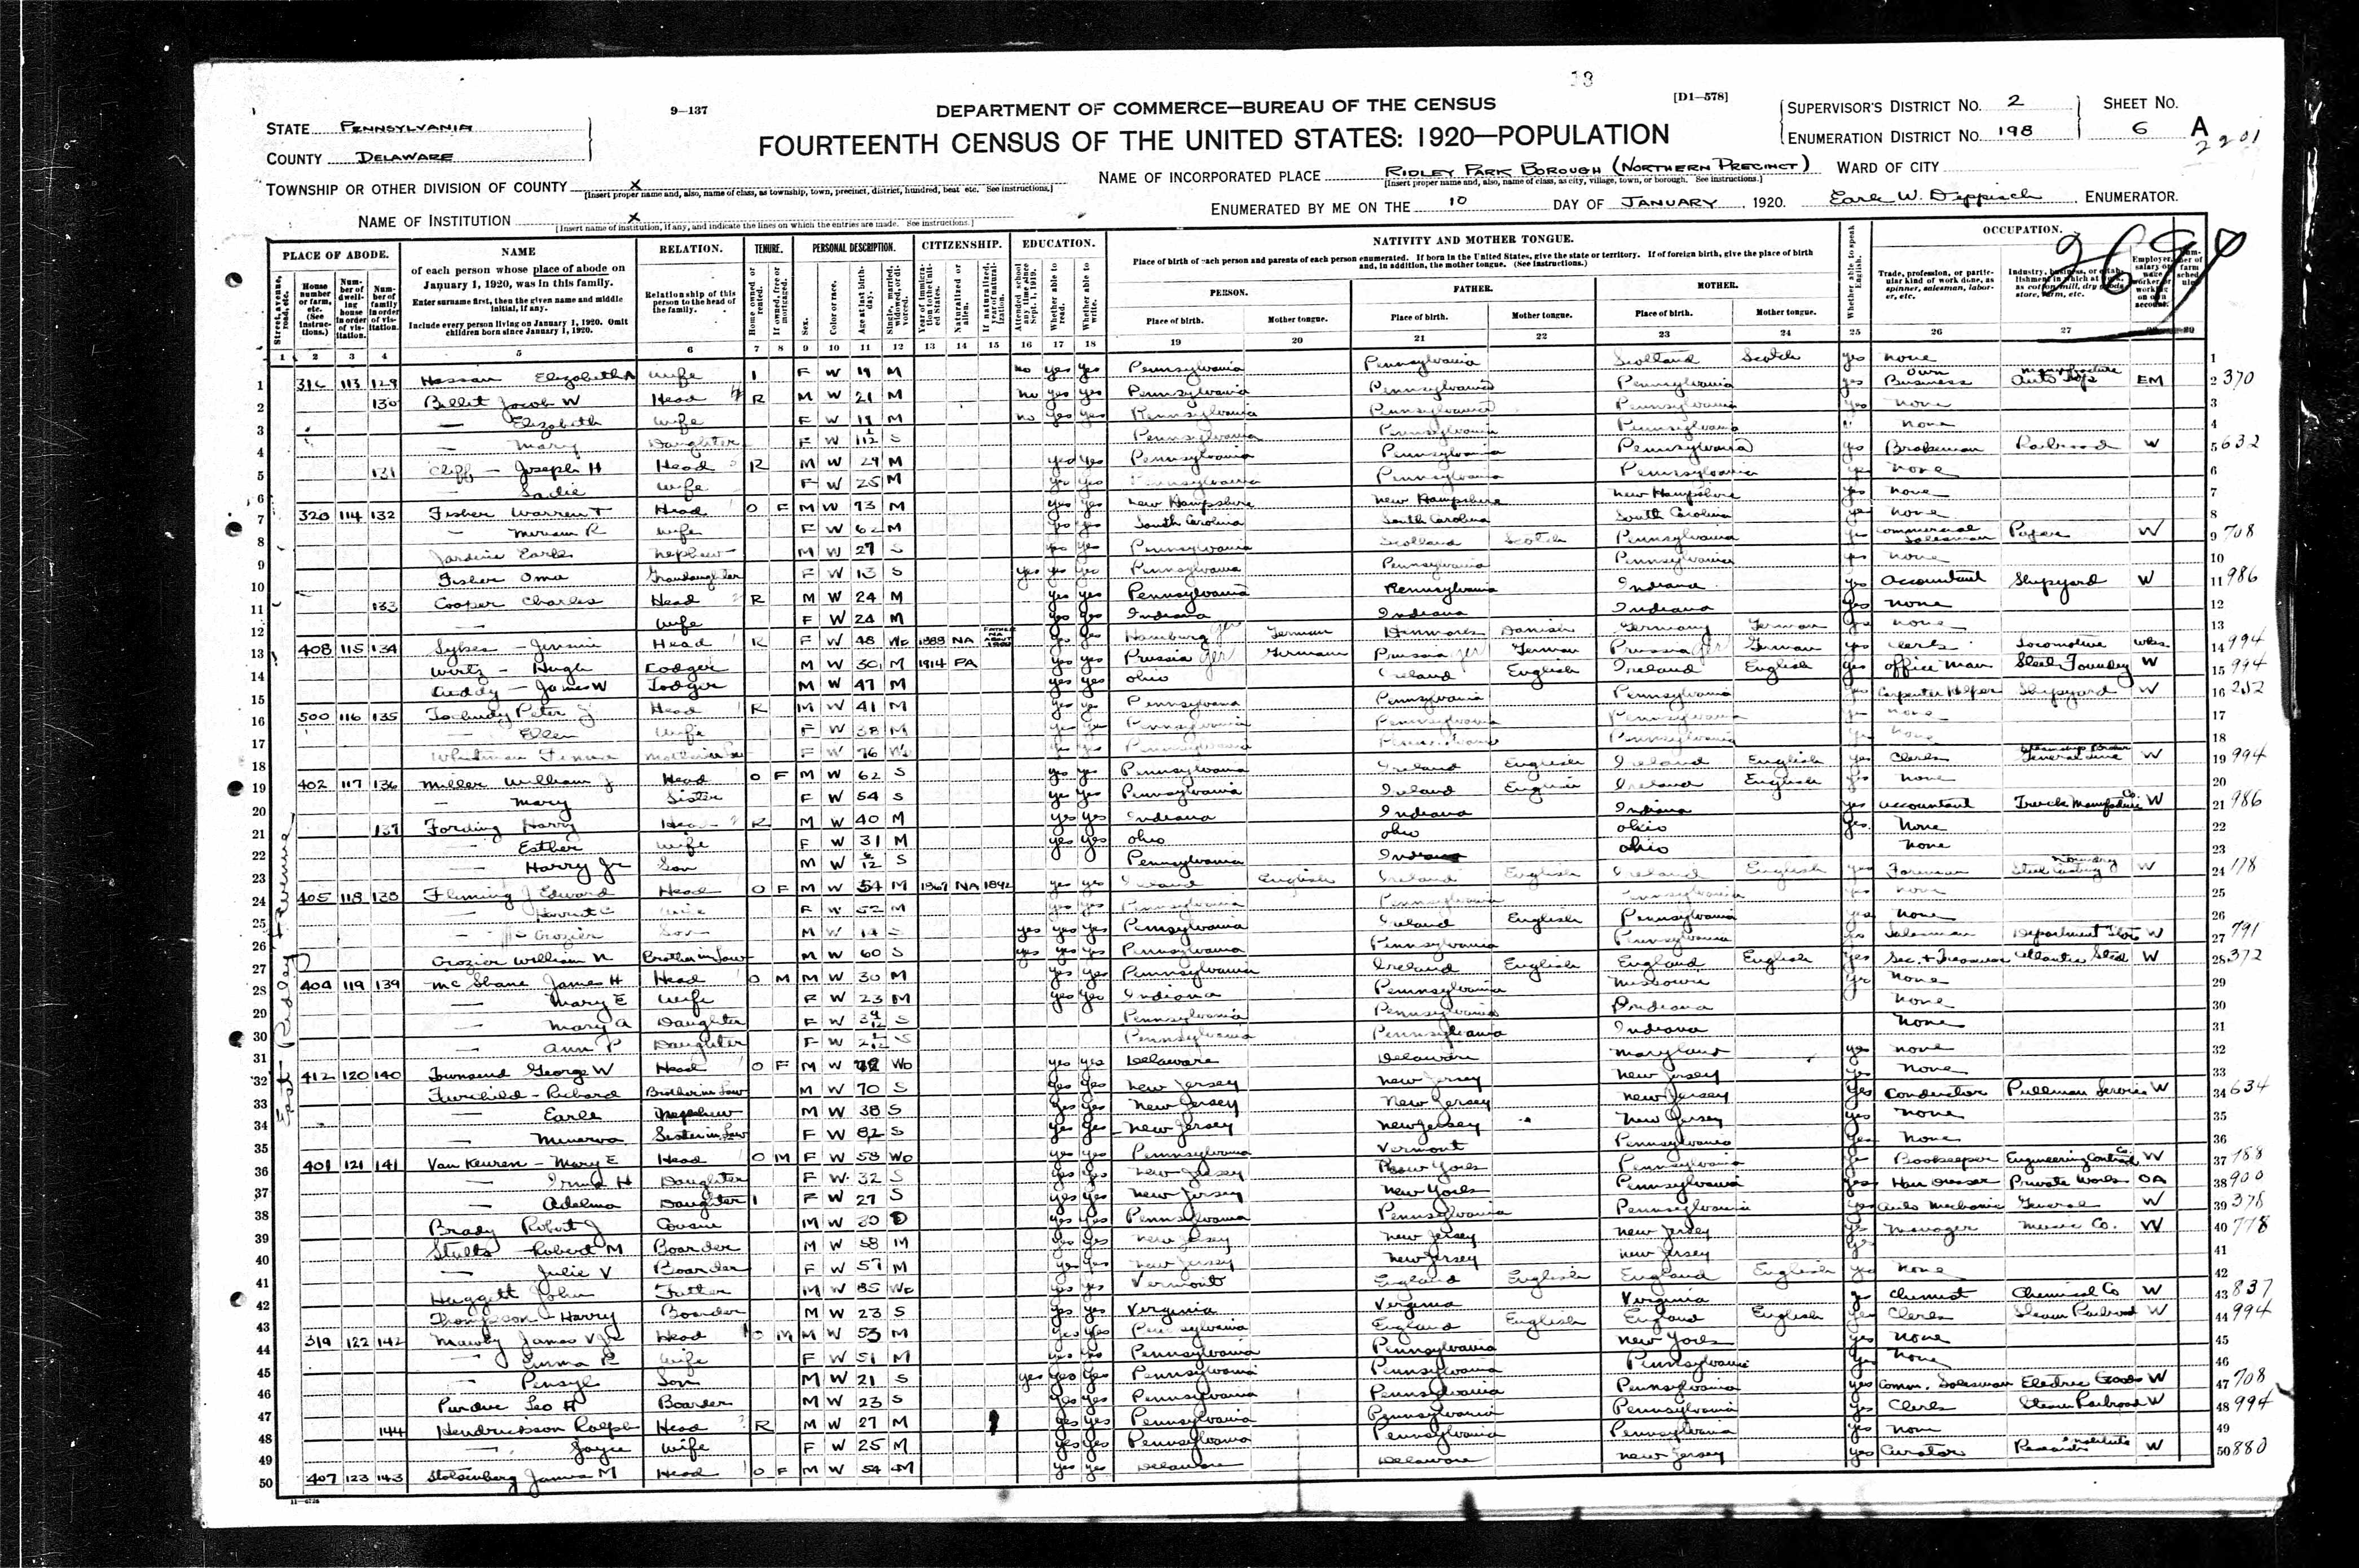 13
STATE Pennsylvania
COUNTY Delaware
9—137
DEPARTMENT OF COMMERCE—BUREAU OF THE CENSUS
[D1—578]
FOURTEENTH CENSUS OF THE UNITED STATES: 1920—POPULATION
SUPERVISOR'S DISTRICT No. 2
ENUMERATION DISTRICT No. 198
SHEET No. 6 A
2201
TOWNSHIP OR OTHER DIVISION OF COUNTY X
[Insert proper name and, also, name of class, as township, town, precinct, district, hundred, beat etc. See instructions.]
NAME OF INCORPORATED PLACE Ridley Park Borough (Northern Precinct)
[Insert proper name and, also, name of class, as city, village, town, or borough. See instructions.]
WARD OF CITY
NAME OF INSTITUTION X
[Insert name of institution, if any, and indicate the lines on which the entries are made. See instructions.]
ENUMERATED BY ME ON THE 10 DAY OF January, 1920. Earle W. Deppisch, ENUMERATOR.
PLACE OF ABODE. NAME RELATION. TENURE. PERSONAL DESCRIPTION. CITIZENSHIP. EDUCATION. NATIVITY AND MOTHER TONGUE. OCCUPATION.
of each person whose place of abode on January 1, 1920, was in this family.
Enter surname first, then the given name and middle initial, if any.
Include every person living on January 1, 1920. Omit children born since January 1, 1920.
Relationship of this person to the head of the family.
Place of birth of each person and parents of each person enumerated. If born in the United States, give the state or territory. If of foreign birth, give the place of birth and, in addition, the mother tongue. (See instructions.)
PERSON. FATHER. MOTHER.
Place of birth. Mother tongue. Place of birth. Mother tongue. Place of birth. Mother tongue.
Whether able to speak English.
Trade, profession, or particular kind of work done, as spinner, salesman, laborer, etc.
1 2 3 4 5 6 7 8 9 10 11 12 13 14 15 16 17 18 19 20 21 22 23 24 25 26 27
East Ridley Avenue
1 316 113 129 Elizabeth A Wife F W 19 M no yes yes Pennsylvania Pennsylvania Scotland Scotch yes none
2 130 Billet Jacob W Head R M W 21 M no yes yes Pennsylvania Pennsylvania Pennsylvania yes Own Business EM 370
3 — Elizabeth Wife F W 19 M no yes yes Pennsylvania Pennsylvania Pennsylvania yes none
4 — Mary Daughter F W S Pennsylvania Pennsylvania Pennsylvania none
5 131 Cliff — Joseph H Head R M W 29 M yes yes Pennsylvania Pennsylvania Pennsylvania yes Brakeman Railroad W 632
6 — Sadie Wife F W 25 M yes yes Pennsylvania Pennsylvania Pennsylvania yes none
7 320 114 132 Fisher Warren T Head O F M W 73 M yes yes New Hampshire New Hampshire New Hampshire yes none
8 — Miriam R Wife F W 62 M yes yes South Carolina South Carolina South Carolina yes none
9 Jardine Earle Nephew M W 27 S yes yes Pennsylvania Scotland Scotch Pennsylvania yes Commercial Salesman Paper W 708
10 Fisher Oma Grandaughter F W 13 S yes yes yes Pennsylvania Pennsylvania Pennsylvania yes none
11 133 Cooper Charles Head R M W 24 M yes yes Pennsylvania Pennsylvania Indiana yes Accountant Shipyard W 986
12 — Wife F W 24 M yes yes Indiana Indiana Indiana yes none
13 408 115 134 Sykes — Jennie Head R F W 48 Wd 1883 NA yes yes Hamburg Ger German Denmark Danish Germany German yes none
14 Wirtz — Hugh Lodger M W 30 M 1914 PA yes yes Prussia Ger German Prussia Ger German Prussia Ger German yes Clerk Locomotive wks 994
15 Cuddy — James W Lodger M W 47 M yes yes Ohio Ireland English Ireland English yes Office Man Steel Foundry W 994
16 500 116 135 Tschudy Peter J Head R M W 41 M yes yes Pennsylvania Pennsylvania Pennsylvania yes Carpenter Helper Shipyard W 252
17 — Ellen Wife F W 38 M yes yes Pennsylvania Pennsylvania Pennsylvania yes none
18 Mother in law F W 76 Wd yes yes Pennsylvania Pennsylvania Pennsylvania yes none
19 402 117 136 Miller William J Head O F M W 62 S yes yes Pennsylvania Ireland English Ireland English yes Clerk W 994
20 — Mary Sister F W 54 S yes yes Pennsylvania Ireland English Ireland English yes none
21 137 Fording Harry Head R M W 40 M yes yes Indiana Indiana Indiana yes Accountant Truck Manufacture Co. W 986
22 — Esther Wife F W 31 M yes yes Ohio Ohio Ohio yes None
23 — Harry Jr Son M W S Pennsylvania Indiana Ohio none
24 405 118 138 Fleming J Edward Head O F M W 54 M 1867 NA 1892 yes yes Ireland English Ireland English Ireland English yes Foreman Steel Casting Foundry W 178
25 — Harriet C Wife F W 52 M yes yes Pennsylvania Pennsylvania Pennsylvania yes none
26 — Crozier Son M W 14 S yes yes yes Pennsylvania Ireland English Pennsylvania yes none
27 Crozier William N Brother in Law M W 60 S yes yes yes Pennsylvania Pennsylvania Pennsylvania yes Salesman Department Store W 791
28 404 119 139 McShane James H Head O M M W 30 M yes yes Pennsylvania Ireland English England English yes Sec. & Treasurer Atlantic Steel W 372
29 — Mary E Wife F W 23 M yes yes Indiana Pennsylvania Missouri yes none
30 — Mary A Daughter F W S Pennsylvania Pennsylvania Indiana none
31 — Ann P Daughter F W S Pennsylvania Pennsylvania Indiana none
32 412 120 140 Townsend George W Head O F M W Wd yes yes Delaware Delaware Maryland yes none
33 Fairchild — Richard Brother in Law M W 70 S yes yes New Jersey New Jersey New Jersey yes none
34 — Earle Nephew M W 38 S yes yes New Jersey New Jersey New Jersey yes Conductor Pullman Service W 634
35 — Minerva Sister in Law F W 82 S yes yes New Jersey New Jersey New Jersey yes none
36 401 121 141 Van Keuren — Mary E Head O M F W 58 Wd yes yes Pennsylvania Vermont Pennsylvania yes none
37 — Irma H Daughter F W 32 S yes yes New Jersey New York Pennsylvania yes Bookeeper Engineering Contract Co. W 188
38 — Adelma Daughter F W 27 S yes yes New Jersey New York Pennsylvania yes Hair Dresser Private Work OA 900
39 Brady Robert J Cousin M W 30 D yes yes Pennsylvania Pennsylvania Pennsylvania yes Auto Mechanic General W 378
40 Stults — Robert M Boarder M W 58 M yes yes New Jersey New Jersey New Jersey yes Manager Music Co. W 778
41 — Julie V Boarder F W 57 M yes yes New Jersey New Jersey New Jersey yes
42 Huggett John Father M W 85 Wd yes yes Vermont England English England English yes none
43 Thompson — Harry Boarder M W 23 S yes yes Virginia Virginia Virginia yes Chemist Chemical Co W 837
44 319 122 142 Mawby James V Jr Head O M M W 53 M yes yes Pennsylvania England English England English yes Clerk Steam Railroad W 994
45 — Emma R Wife F W 51 M yes yes Pennsylvania Pennsylvania New York yes none
46 — Pensyl Son M W 21 S yes yes yes Pennsylvania Pennsylvania Pennsylvania yes none
47 Purdue Leo H Boarder M W 23 S yes yes Pennsylvania Pennsylvania Pennsylvania yes Comm. Salesman Electric Goods W 708
48 144 Hendrickson Ralph Head R M W 27 M yes yes Pennsylvania Pennsylvania Pennsylvania yes Clerk Steam Railroad W 994
49 — Joyce Wife F W 25 M yes yes Pennsylvania Pennsylvania Pennsylvania yes none
50 407 123 143 Stotsenberg James M Head O F M W 54 M yes yes Delaware Delaware New Jersey yes Curator Institute W 880